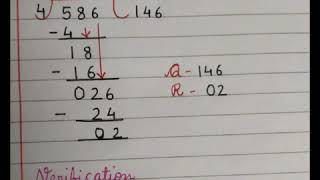 4) 586 ( 146
- 4
18
- 16
026
- 24
02
Q - 146
R - 02
Verification